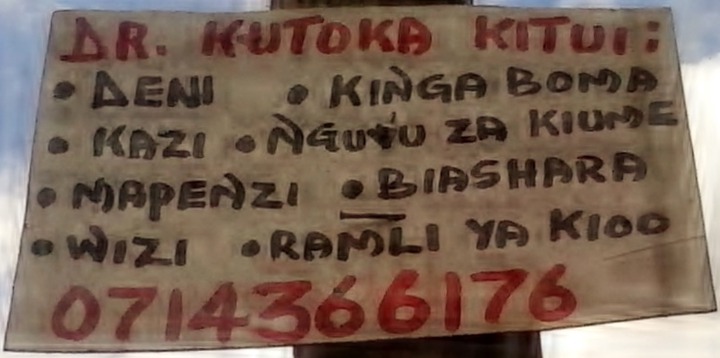 DR. KUTOKA KITUI:
• DENI • KINGA BOMA
• KAZI • NGUVU ZA KIUME
• MAPENZI • BIASHARA
• WIZI • RAMLI YA KIOO
0714366176